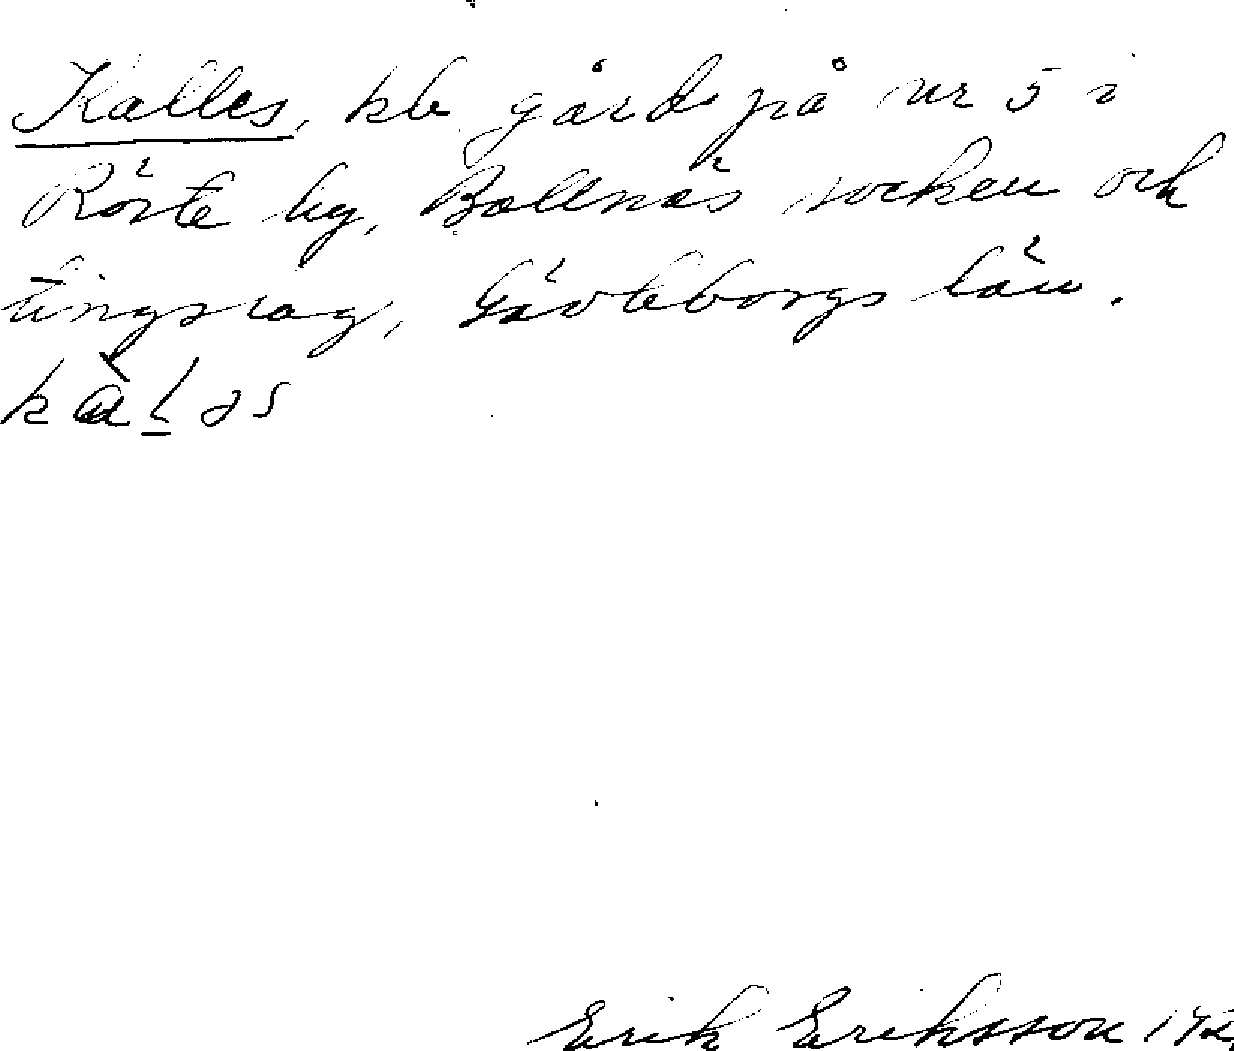 Kalles, kb. gård på nr 5 i
Röste by, Bollnäs socken och
tingslag, Gävleborgs län.
kàlas
Erik Eriksson